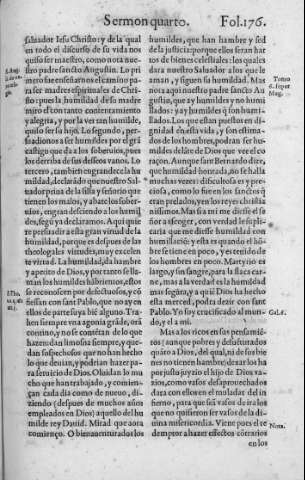 Sermon quarto. Fol.176.
saluador Iesu Christo: y de la qual
en todo el discurso de su vida nos
quiso ser maestro, como nota nue
stro padre sanct̃o Augustin. Lo pri
mero fue enseñarnos el camino pa
ra ser madres espirituales de Chri-
sto: pues la humildad de su madre
miro d'l contanto contentamiento
y alegria, y por la ver tan humilde,
quiso ser su hijo. Lo segundo, per-
suadionos a ser humildes por el grã
castigo que da a los soberuios, pues
los derriba de sus desseos vanos. Lo
tercero, tambien engrandece la hu
mildad, declarãdo que nuestro Sal-
uador priua de la silla y señorio que
tienen los malos, y abate los sober-
uios, engrandeciendo a los humil-
des, segũ ya declaramos. Aqui quie
re persuadir a esta gran virtud de la
humildad, porque es despues de las
theologales virtudes, muy excelen
te virtud. La humildad, da hambre
y apetito de Dios, y por tanto se lla-
man los humildes hãbrientos, estos
se reconoscen por defectuosos, y cõ
fiessan con sant Pablo, que no ay en
ellos de parte suya biẽ alguno. Tra-
hen siempre vna agonia grãde, orã
contino, y no se contẽtan de lo que
hazen: dan limosna siempre, y que-
dan sospechosos que no han hecho
lo que deuian, y podrian hazer pa-
ra seruicio de Dios. Oluidan lo mu
cho que han trabajado, y comien-
çan cada dia como de nueuo, di-
ziendo (despues de muchos años
empleados en Dios) aquello del hu
milde rey Dauid. Mirad que aora
comienço. O bienauenturados los
humildes, que han hambre y sed
de la justicia: porque ellos seran har
tos de bienes celestiales: los quales
dara nuestro Saluador a los que le
aman, y siguen su humildad. Mas
nota aqui nuestro padre sancto Au
gustin, que ay humildes y no humi
llados, y ay humildes q̃ son humi-
llados. Los que estan puestos en di-
gnidad en esta vida, y son estima-
dos de los hombres, podrã ser hu-
mildes delãte de Dios que vee el co
raçon. Aunque sant Bernardo dize,
que humildad honrada, no se halla
muchas vezes: dificultosa es y pre-
ciosa, como lo fue en los sanctos q̃
eran prelados, y en los reyes christia
nissimos. Mas si a mi me diesse el se
ñor a escoger, con verdad le supli-
caria que me diesse humildad con
humiliaciõ: y esta es quando el hõ-
bre se tiene en poco, y es tenido de
los hombres en poco. Martyrio es
largo, y sin sangre, para la flaca car-
ne, mas a la verdad es la humildad
mas segura, y a quiẽ Dios ha hecho
esta merced, podra dezir con sant
Pablo. Yo soy crucificado al mun-
do, y el a mi.
Mas a los ricos en sus pensamiẽ-
tos (aunque pobres y desafuturados
quãto a Dios, del qual, ni de sus bie
nes no tienen hambre) dexar los ha
por justo juyzio el hijo de Dios va-
zios, como vasos desaprouechados
dara con ellos en el moladar del in
fierno, para que seã vasos de ira los
que no quisieron ser vasos de la di-
uina misericordia. Viene pues el re
demptor a hazer effectos cõtrarios
en los
Gal.6.
Nota.